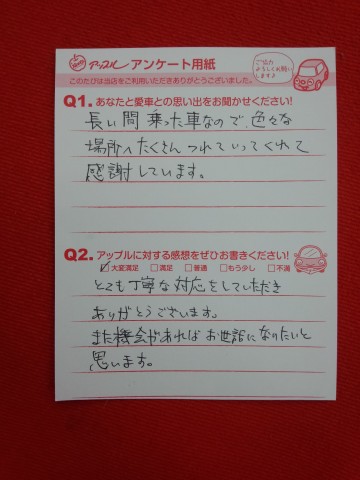 アップル アンケート用紙
ご協力
よろしくお願い
します♪
このたびは当店をご利用いただきありがとうございました。
Q1. あなたと愛車との思い出をお聞かせください!
長い間 乗った車なので、色々な
場所へたくさん つれていってくれて
感謝しています。
Q2. アップルに対する感想をぜひお書きください!
☑大変満足 □満足 □普通 □もう少し □不満
とても丁寧な対応をしていただき
ありがとうございます。
また機会があれば お世話になりたいと
思います。